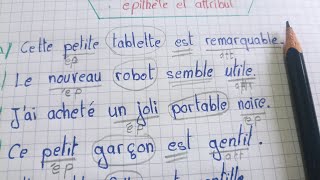 épithète et attribut
Cette petite tablette est remarquable.
ep att
Le nouveau robot semble utile.
ep att
J'ai acheté un joli portable noire.
ep ep
Ce petit garçon est gentil.
ep att